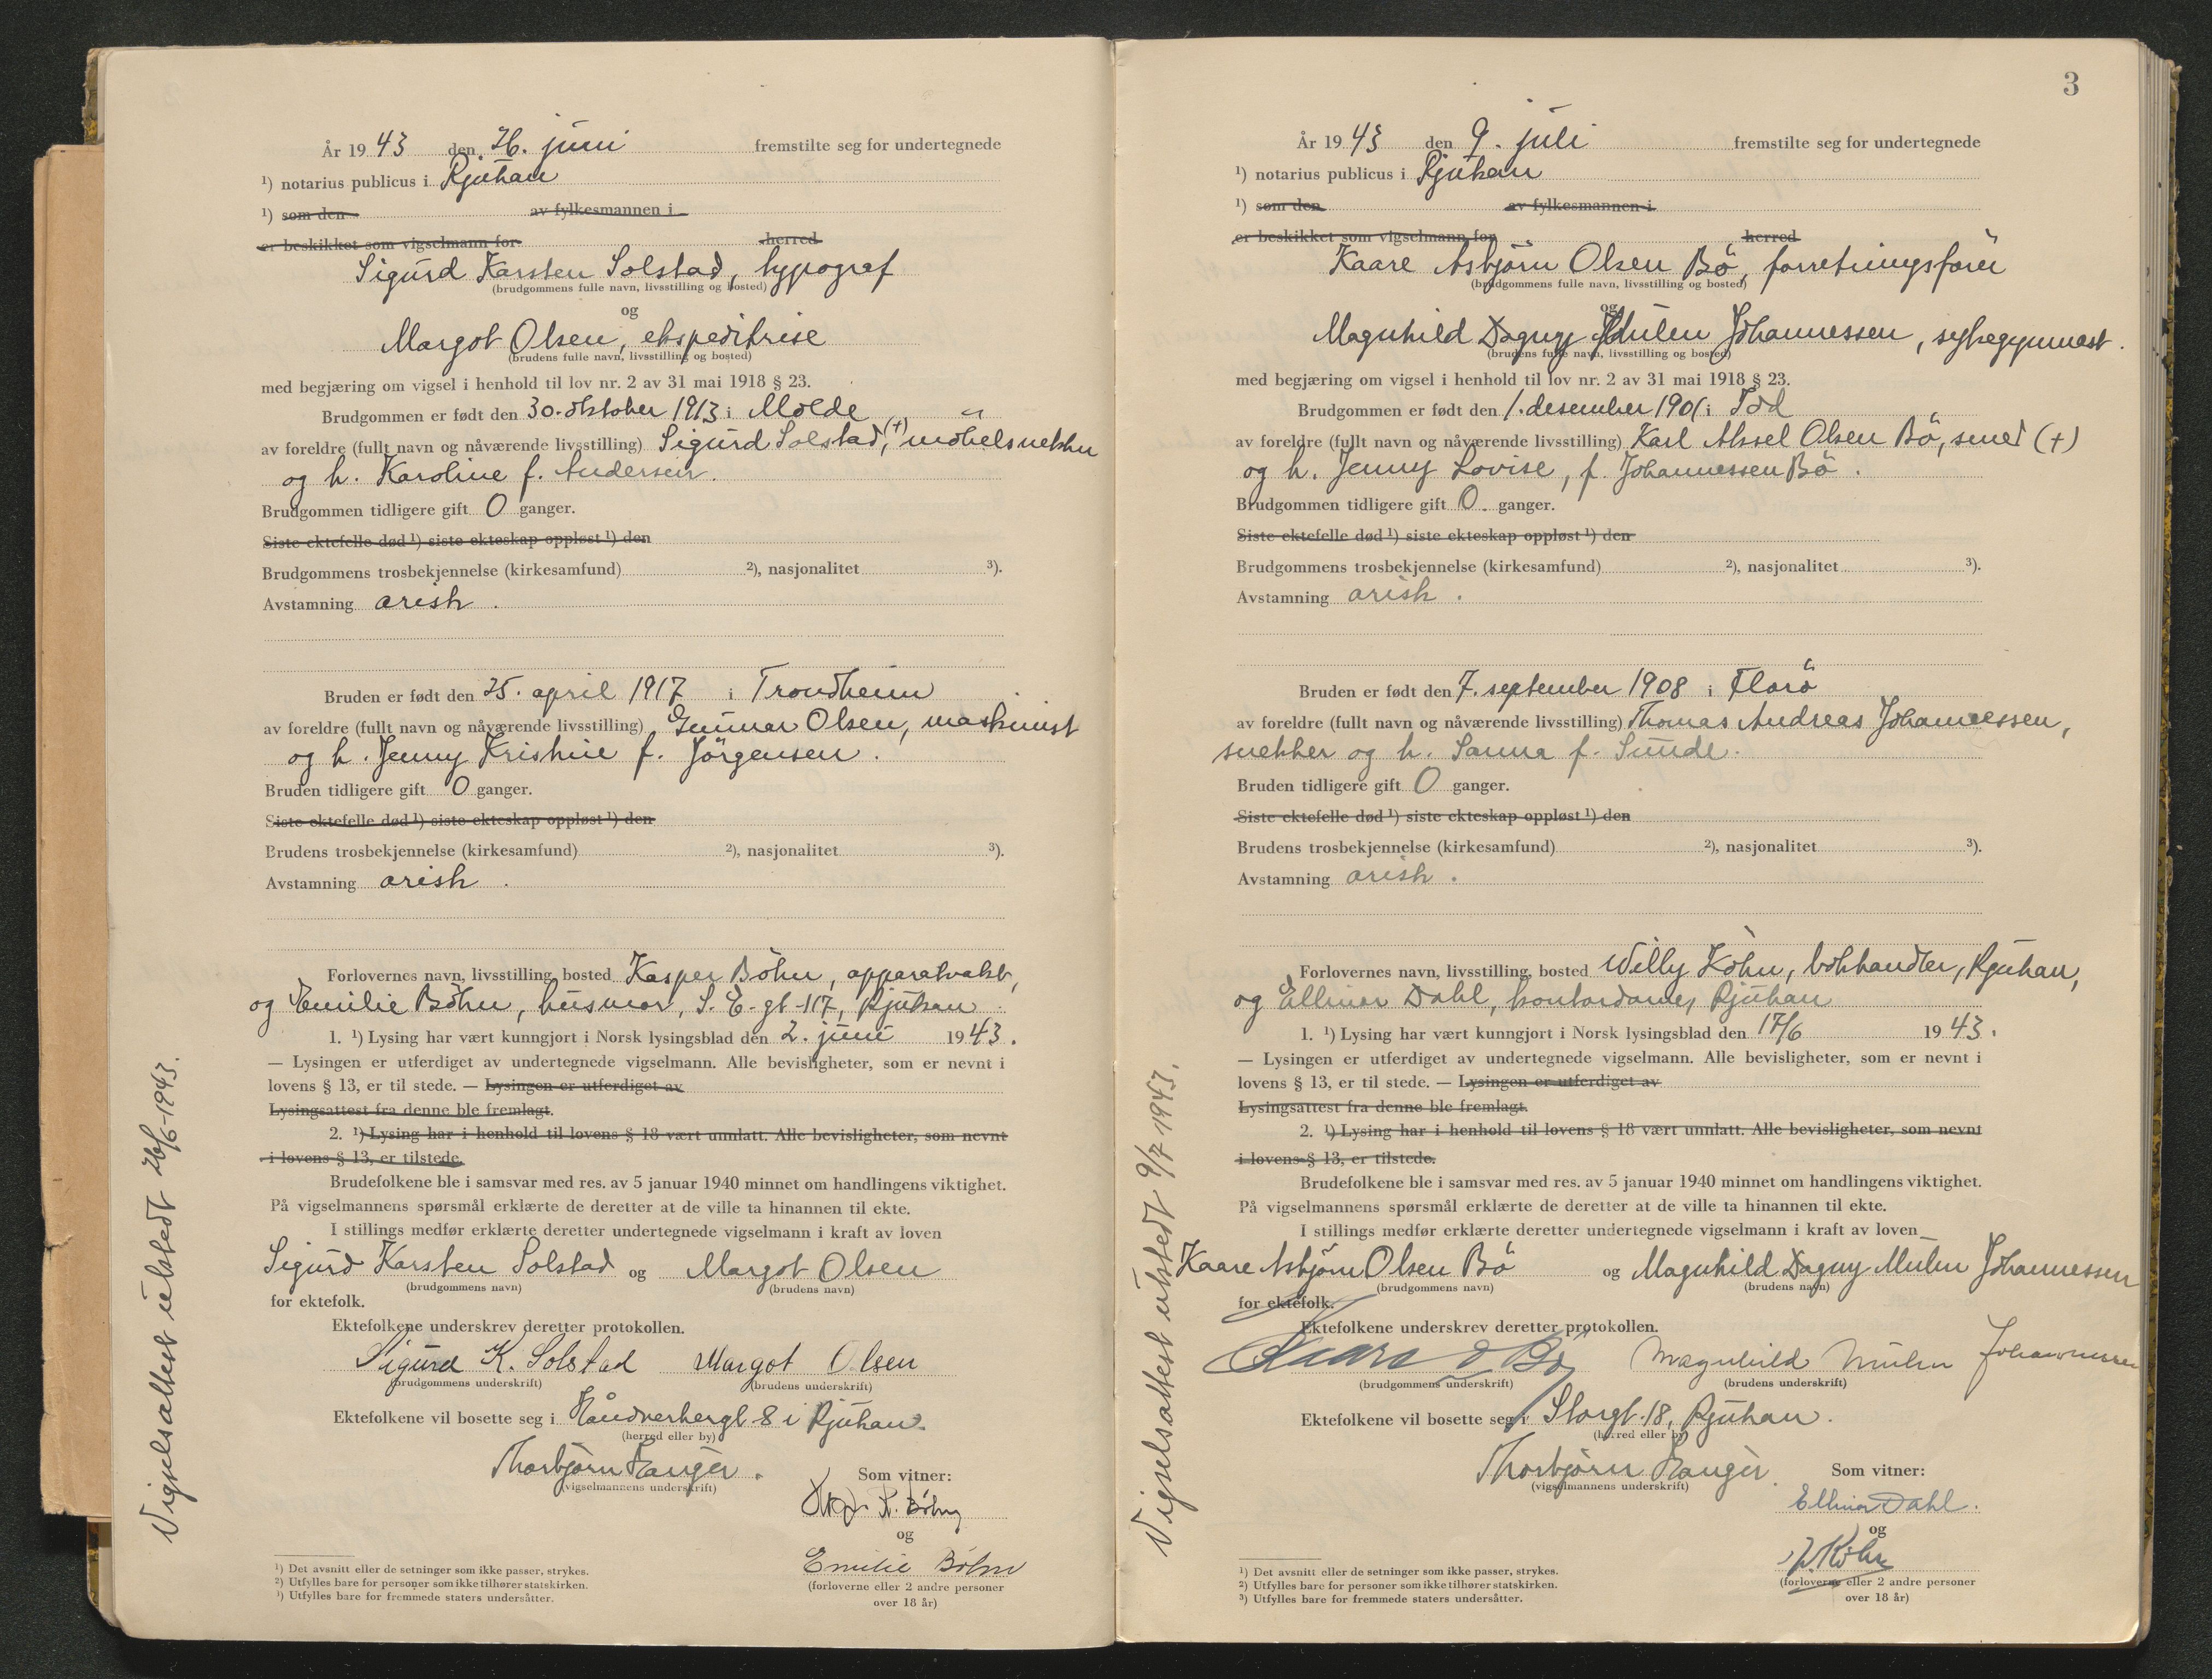 År 1943 den 26. juni fremstilte seg for undertegnede
¹) notarius publicus i Rjukan
¹) som den av fylkesmannen i
er beskikket som vigselmann for herred
Sigurd Karsten Solstad, typograf
(brudgommens fulle navn, livsstilling og bosted)
og
Margot Olsen, ekspeditrise
(brudens fulle navn, livsstilling og bosted)
med begjæring om vigsel i henhold til lov nr. 2 av 31 mai 1918 § 23.
Brudgommen er født den 30. oktober 1913 i Molde
av foreldre (fullt navn og nåværende livsstilling) Sigurd Solstad, (+) møbelsnekker
og h. Karoline f. Andersen.
Brudgommen tidligere gift 0 ganger.
Siste ektefelle død ¹) siste ekteskap oppløst ¹) den
Brudgommens trosbekjennelse (kirkesamfund) ²), nasjonalitet ³).
Avstamning arisk.
Bruden er født den 25. april 1917 i Trondheim
av foreldre (fullt navn og nåværende livsstilling) Gunnar Olsen, maskinist
og h. Jenny Kristine f. Jörgensen.
Bruden tidligere gift 0 ganger.
Siste ektefelle død ¹) siste ekteskap oppløst ¹) den
Brudens trosbekjennelse (kirkesamfund) ²), nasjonalitet ³).
Avstamning arisk.
Forlovernes navn, livsstilling, bosted Kasper Böhn, apparatvakt,
og Emilie Böhn, husmor, S. E. gt 117, Rjukan
1. ¹) Lysing har vært kunngjort i Norsk lysingsblad den 2. juni 1943.
— Lysingen er utferdiget av undertegnede vigselmann. Alle bevisligheter, som er nevnt i
lovens § 13, er til stede. — Lysingen er utferdiget av
Lysingsattest fra denne ble fremlagt.
2. ¹) Lysing har i henhold til lovens § 18 vært unnlatt. Alle bevisligheter, som nevnt
i lovens § 13, er tilstede.
Brudefolkene ble i samsvar med res. av 5 januar 1940 minnet om handlingens viktighet.
På vigselmannens spørsmål erklærte de deretter at de ville ta hinannen til ekte.
I stillings medfør erklærte deretter undertegnede vigselmann i kraft av loven
Sigurd Karsten Solstad og Margot Olsen
(brudgommens navn) (brudens navn)
for ektefolk.
Ektefolkene underskrev deretter protokollen.
Sigurd K. Solstad Margot Olsen
(brudgommens underskrift) (brudens underskrift)
Ektefolkene vil bosette seg i Håndverkergt 8 i Rjukan.
(herred eller by)
Thorbjørn
(vigselmannens underskrift)
Som vitner:
Böhn
og
Emilie Böhn
(forloverne eller 2 andre personer
over 18 år)
¹) Det avsnitt eller de setninger som ikke passer, strykes.
²) Utfylles bare for personer som ikke tilhører statskirken.
³) Utfylles bare for fremmede staters undersåtter.
Vigselsattest utstedt 26/6-1943.
3
År 1943 den 9. juli fremstilte seg for undertegnede
¹) notarius publicus i Rjukan
¹) som den av fylkesmannen i
er beskikket som vigselmann for herred
Kaare Asbjørn Olsen Bö, forretningsförer
(brudgommens fulle navn, livsstilling og bosted)
og
Magnhild Dagny Mulen Johannessen, sykegymnast.
(brudens fulle navn, livsstilling og bosted)
med begjæring om vigsel i henhold til lov nr. 2 av 31 mai 1918 § 23.
Brudgommen er født den 1. desember 1901 i
av foreldre (fullt navn og nåværende livsstilling) Karl Aksel Olsen Bö, smed (+)
og h. Jenny Lovise, f. Johannessen Bö.
Brudgommen tidligere gift 0. ganger.
Siste ektefelle død ¹) siste ekteskap oppløst ¹) den
Brudgommens trosbekjennelse (kirkesamfund) ²), nasjonalitet ³).
Avstamning arisk.
Bruden er født den 7. september 1908 i Florö
av foreldre (fullt navn og nåværende livsstilling) Thomas Andreas Johannessen,
snekker og h. Sanna f. Sunde.
Bruden tidligere gift 0 ganger.
Siste ektefelle død ¹) siste ekteskap oppløst ¹) den
Brudens trosbekjennelse (kirkesamfund) ²), nasjonalitet ³).
Avstamning arisk.
Forlovernes navn, livsstilling, bosted Willy Köhn, bokhandler, Rjukan,
og Ellinor Dahl, kontordame, Rjukan
1. ¹) Lysing har vært kunngjort i Norsk lysingsblad den 17/6 1943.
— Lysingen er utferdiget av undertegnede vigselmann. Alle bevisligheter, som er nevnt i
lovens § 13, er til stede. — Lysingen er utferdiget av
Lysingsattest fra denne ble fremlagt.
2. ¹) Lysing har i henhold til lovens § 18 vært unnlatt. Alle bevisligheter, som nevnt
i lovens § 13, er tilstede.
Brudefolkene ble i samsvar med res. av 5 januar 1940 minnet om handlingens viktighet.
På vigselmannens spørsmål erklærte de deretter at de ville ta hinannen til ekte.
I stillings medfør erklærte deretter undertegnede vigselmann i kraft av loven
Kaare Asbjørn Olsen Bö og Magnhild Dagny Mulen Johannessen
(brudgommens navn) (brudens navn)
for ektefolk.
Ektefolkene underskrev deretter protokollen.
Kaare O Bö Magnhild Mulen Johannessen
(brudgommens underskrift) (brudens underskrift)
Ektefolkene vil bosette seg i Storgt. 18, Rjukan.
(herred eller by)
Thorbjørn
(vigselmannens underskrift)
Som vitner:
Ellinor Dahl.
og
W. Köhn
(forloverne eller 2 andre personer
over 18 år)
¹) Det avsnitt eller de setninger som ikke passer, strykes.
²) Utfylles bare for personer som ikke tilhører statskirken.
³) Utfylles bare for fremmede staters undersåtter.
Vigselsattest utstedt 9/7 1943.